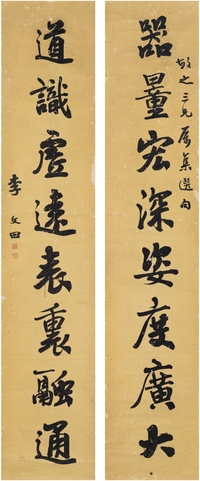 器量宏深姿度廣大
敬之三兄屬集選句
道識虛遠表裏融通
李文田